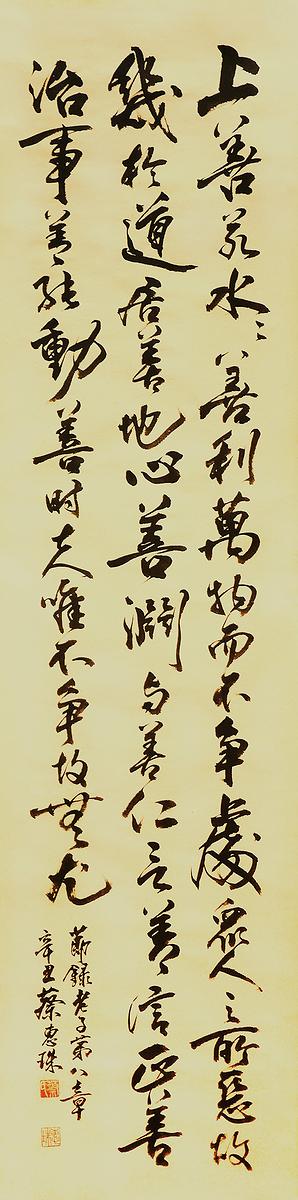 上善若水〻善利萬物而不争處眾人之所惡故
幾於道居善地心善淵与善仁言善信正善
治事善能動善時夫唯不争故無尤
節錄老子第八章
辛丑蔡惠珠